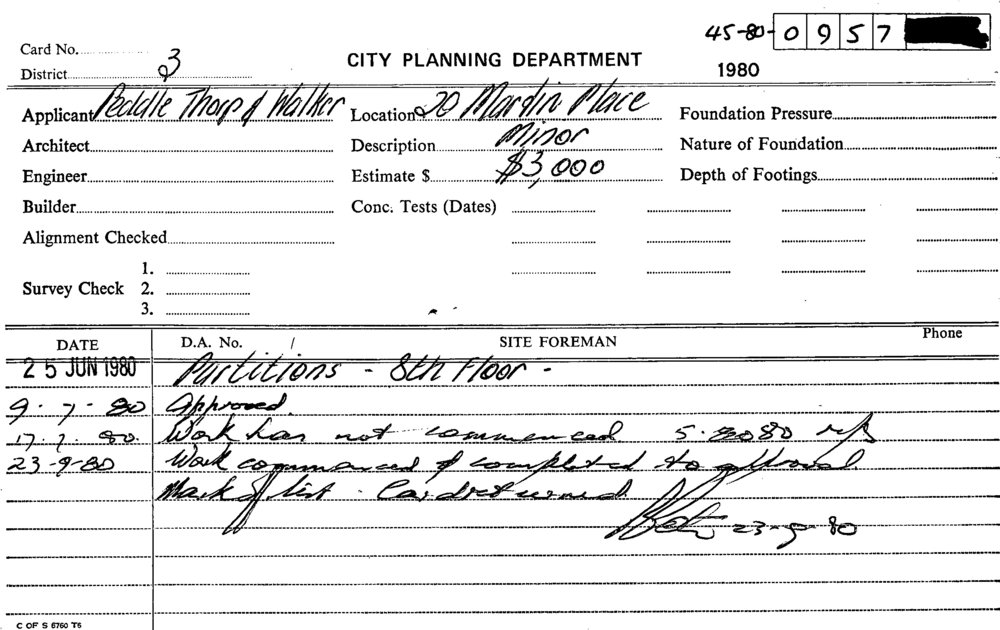 45-80-0957
Card No.
CITY PLANNING DEPARTMENT
District 3
1980
Applicant Peddle Thorp & Walker Location 20 Martin Place Foundation Pressure
Architect Description Minor Nature of Foundation
Engineer Estimate $ $3,000 Depth of Footings
Builder Conc. Tests (Dates)
Alignment Checked
1.
Survey Check 2.
3.
DATE D.A. No. / SITE FOREMAN Phone
25 JUN 1980 Partitions - 8th Floor -
9-7-80 Approved.
17.7.80. Work has not commenced 5.8080
23-9-80 Work commenced & completed to approval
Mark off list. Card returned
23-9-80
C OF S 6760 T6